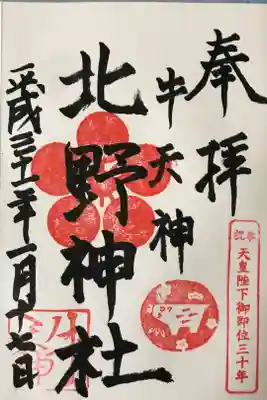 奉拝
牛天神
北野神社
平成三十一年一月十七日
奉祝 天皇陛下御即位三十年